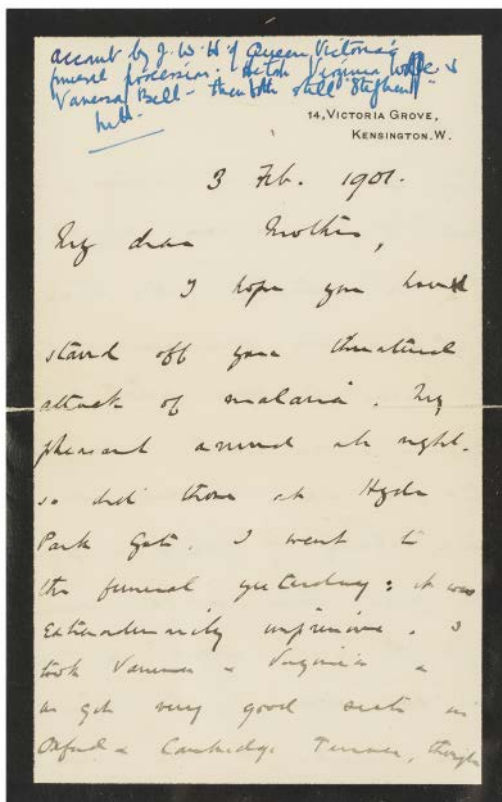 account by J.W.H. of Queen Victoria's
funeral procession. Virginia Woolfe &
Vanessa Bell - then both still Stephen
14, VICTORIA GROVE,
KENSINGTON. W.
3 Feb. 1901.
My dear Mother,
I hope you have
staved off your threatened
attack of malaria. My
pheasant arrived all right.
so did those at Hyde
Park Gate. I went to
the funeral yesterday: it was
extraordinarily impressive. I
took Vanessa & Virginia &
we got very good seats in
Oxford & Cambridge Terrace, though